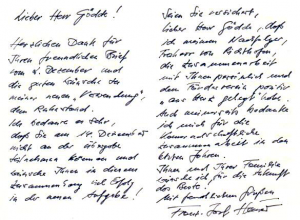 Lieber Herr Gödde!
Herzlichen Dank für
Ihren freundlichen Brief
vom 4. Dezember und
die guten Wünsche zu
meiner neuen Verwendung,
dem Ruhestand.
Ich bedauere es sehr,
daß Sie am 14. Dezember
nicht an der
teilnehmen können und
wünsche Ihnen in diesem
Zusammenhang viel Erfolg
in der neuen Aufgabe!
Seien Sie versichert,
lieber Herr Gödde, daß
ich meinem Nachfolger,
Freiherr von
die Zusammenarbeit
mit Ihnen persönlich und
dem Förderverein positiv
"ans Herz gelegt" habe.
Auch meinerseits bedanke
ich mich für die
kameradschaftliche
Zusammenarbeit in den
letzten Jahren.
Ihnen und Ihrer Familie
wünsche ich für die Zukunft
das Beste!
Mit freundlichen Grüßen
Franz-Josef